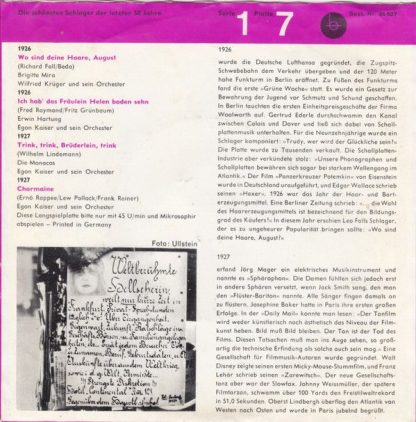 Die schönsten Schlager der letzten 50 Jahre
Serie 1 Platte 7
Best.-Nr.
1926
Wo sind deine Haare, August
(Richard Fall/Beda)
Brigitte Mira
Wilfried Krüger und sein Orchester
1926
Ich hab' das Fräulein Helen baden sehn
(Fred Raymond/Fritz Grünbaum)
Erwin Hartung
Egon Kaiser und sein Orchester
1927
Trink, trink, Brüderlein, trink
(Wilhelm Lindemann)
Die Monacos
Egon Kaiser und sein Orchester
1927
Charmaine
(Ernö Rappee/Lew Pollack/Frank Reiner)
Egon Kaiser und sein Orchester
Diese Langspielplatte bitte nur mit 45 U/min und Mikrosaphir
abspielen – Printed in Germany
Foto: Ullstein
Weltberühmte
Hellseherin
weilt nur kurze Zeit in
Frankfurt. Privat-Sprechstunden
1926
wurde die Deutsche Lufthansa gegründet, die Zugspitz-
Schwebebahn dem Verkehr übergeben und der 120 Meter
hohe Funkturm in Berlin eröffnet. Zu Füßen des Funkturms
fand die erste »Grüne Woche« statt. Es wurde ein Gesetz zur
Bewahrung der Jugend vor Schmutz und Schund geschaffen.
In Berlin tauchten die ersten Einheitspreisgeschäfte der Firma
Woolworth auf. Gertrud Ederle durchschwamm den Kanal
zwischen Calais und Dover und ließ sich dabei von Schall-
plattenmusik unterhalten. Für die Neunzehnjährige wurde ein
Schlager komponiert: »Trudy, wer wird der Glückliche sein?«
Die Platte wurde zu Tausenden verkauft. Die Schallplatten-
Industrie aber verkündete stolz: »Unsere Phonographen und
Schallplatten bewähren sich sogar bei starkem Wellengang im
Atlantik.« Der Film »Panzerkreuzer Potemkin« von Eisenstein
wurde in Deutschland uraufgeführt, und Edgar Wallace schrieb
seinen »Hexer«. 1926 war das Jahr der Haar- und Bart-
erzeugungsmittel. Eine Berliner Zeitung schrieb: »... die Wahl
des Haarerzeugungsmittels ist bezeichnend für den Bildungs-
grad des Käufers!« In diesem Jahr erschien Leo Falls Schlager,
der es zu ungeheurer Popularität bringen sollte: »Wo sind
deine Haare, August?«
1927
erfand Jörg Mager ein elektrisches Musikinstrument und
nannte es »Sphärophon«. Die Damen fühlten sich jedoch erst
in andere Sphären versetzt, wenn Jack Smith sang, den man
den »Flüster-Bariton« nannte. Alle Sänger fingen damals an
zu flüstern. Josephine Baker hatte in Paris ihre ersten großen
Erfolge. In der »Daily Mail« konnte man lesen: »Der Tonfilm
wird weder künstlerisch noch ästhetisch das Niveau der Film-
kunst heben. Bild muß Bild bleiben. Der Ton ist der Tod des
Films. Diesen Tatsachen muß man ins Auge sehen, so groß-
artig die technische Erfindung als solche auch sein mag.« Eine
Gesellschaft für Filmmusik-Autoren wurde gegründet. Walt
Disney zeigte seinen ersten Micky-Mouse-Stummfilm, und Franz
Lehár schrieb seinen »Zarewitsch«. Der neue Gesellschafts-
tanz aber war der Slowfox. Johnny Weissmüller, der spätere
Filmtarzan, schwamm über 100 Yards den Freistilweltrekord
in 51,0 Sekunden. Oberst Lindbergh überflog den Atlantik von
Westen nach Osten und wurde in Paris jubelnd begrüßt.